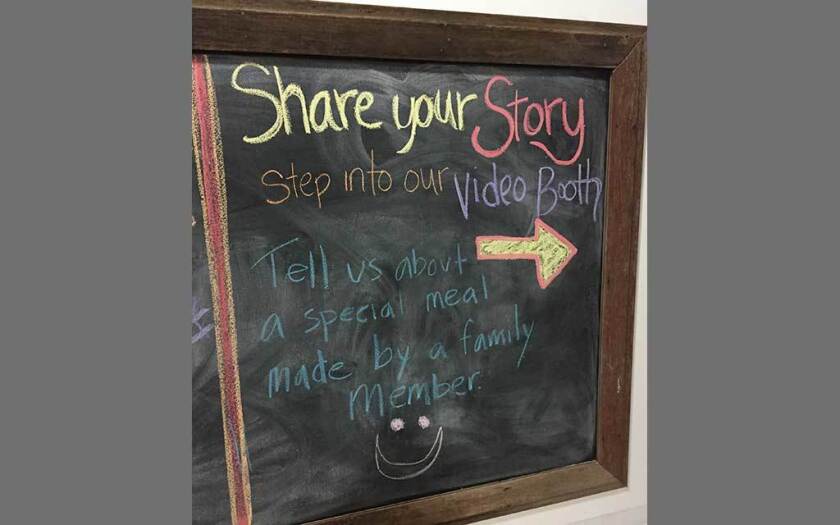 Share your Story
Step into our Video Booth
Tell us about
a special meal
made by a family
Member.